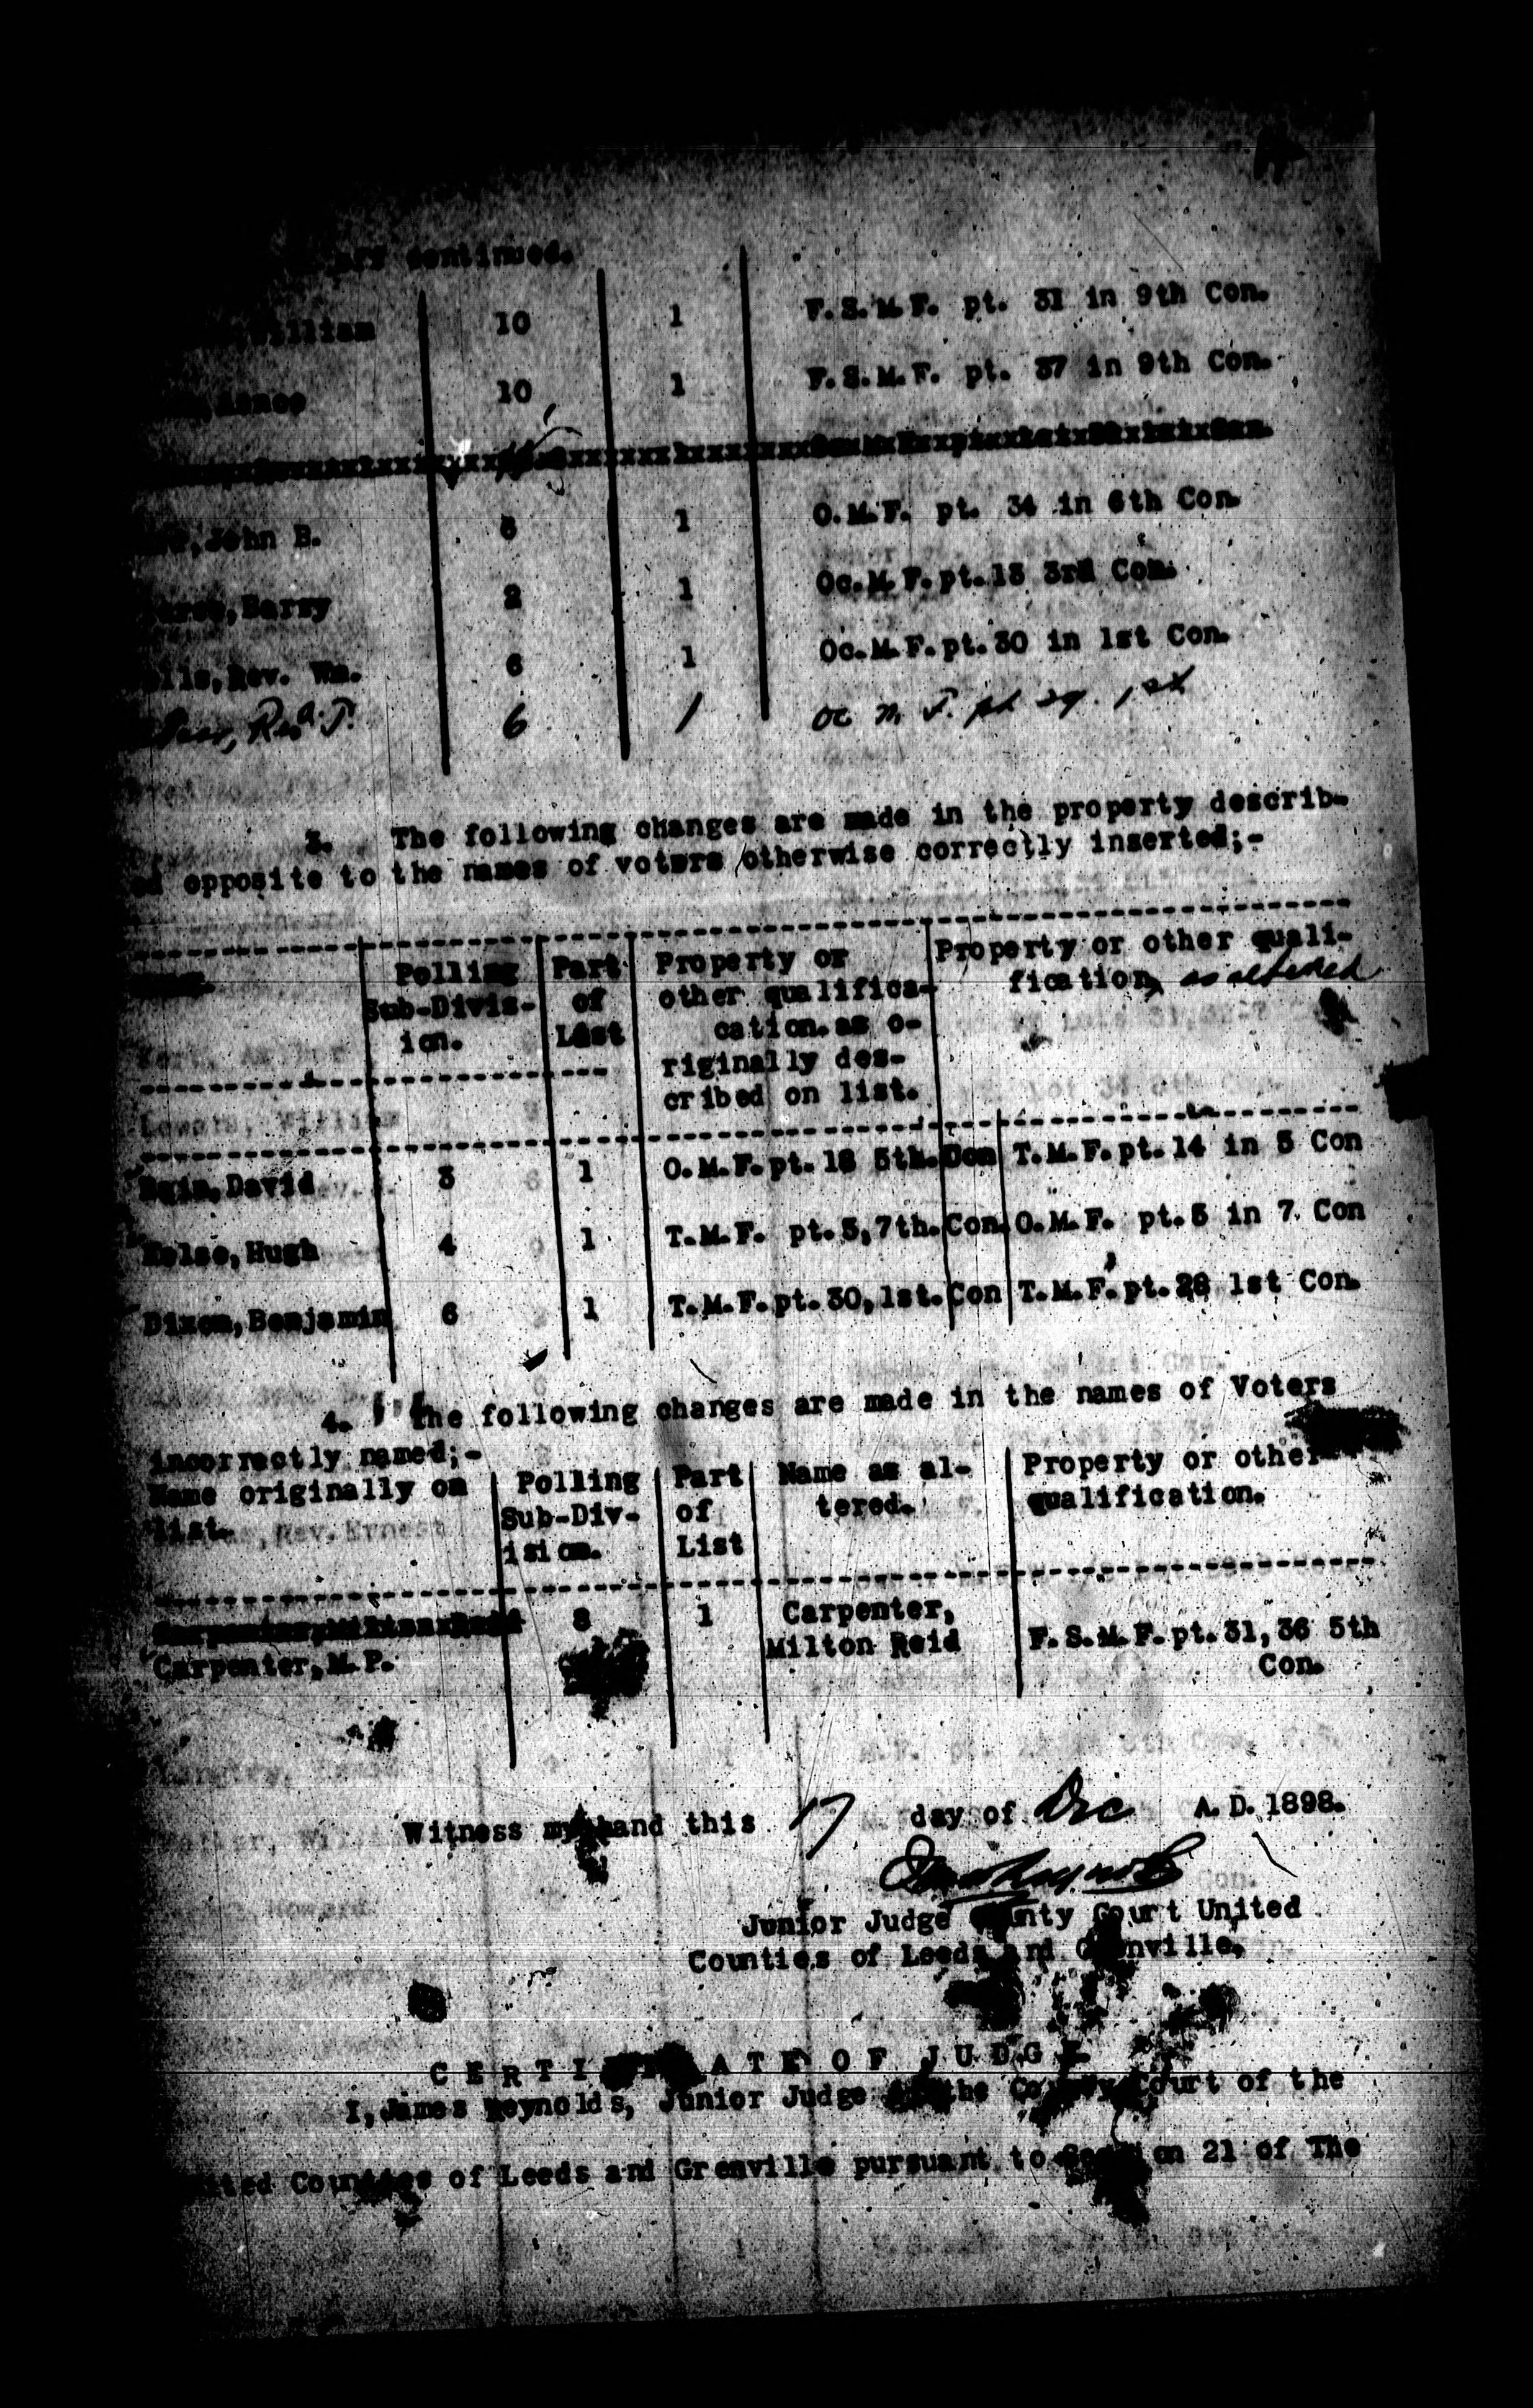 continued.
William 10 1 F.S.M.F. pt. 31 in 9th Con.
10 1 F.S.M.F. pt. 37 in 9th Con.
John B. 1 O.M.F. pt. 34 in 6th Con.
Harry 2 1 Oc.M.F.pt.13 3rd Con.
Rev. Wm. 6 1 Oc.M.F.pt.30 in 1st Con.
6 1 Oc M F. pt 29. 1st
3. The following changes are made in the property describ-
ed opposite to the names of voters otherwise correctly inserted;-
Polling Part Property or Property or other quali-
Sub-Divis- of other qualifica- fication, as altered
ion. List cation.as o-
riginally des-
cribed on list.
David 3 1 O.M.F.pt.18 5th.Con T.M.F.pt.14 in 5 Con
Kelso,Hugh 4 1 T.M.F. pt.5,7th.Con. O.M.F. pt.5 in 7 Con
Dixon,Benjamin 6 1 T.M.F.pt.30,1st.Con T.M.F.pt.28 1st Con.
4. The following changes are made in the names of Voters
incorrectly named;-
Name originally on Polling Part Name as al- Property or other
list. Sub-Div- of tered. qualification.
ision. List
8 1 Carpenter,
Carpenter,M.P. Milton Reid F.S.M.F.pt.31,36 5th
Con.
Witness my hand this 17 day of Dec A.D.1898.
Junior Judge County Court United
Counties of Leeds and Grenville.
CERTIFICATE OF JUDGE
I,James Reynolds, Junior Judge of the County Court of the
United Counties of Leeds and Grenville pursuant to Section 21 of The